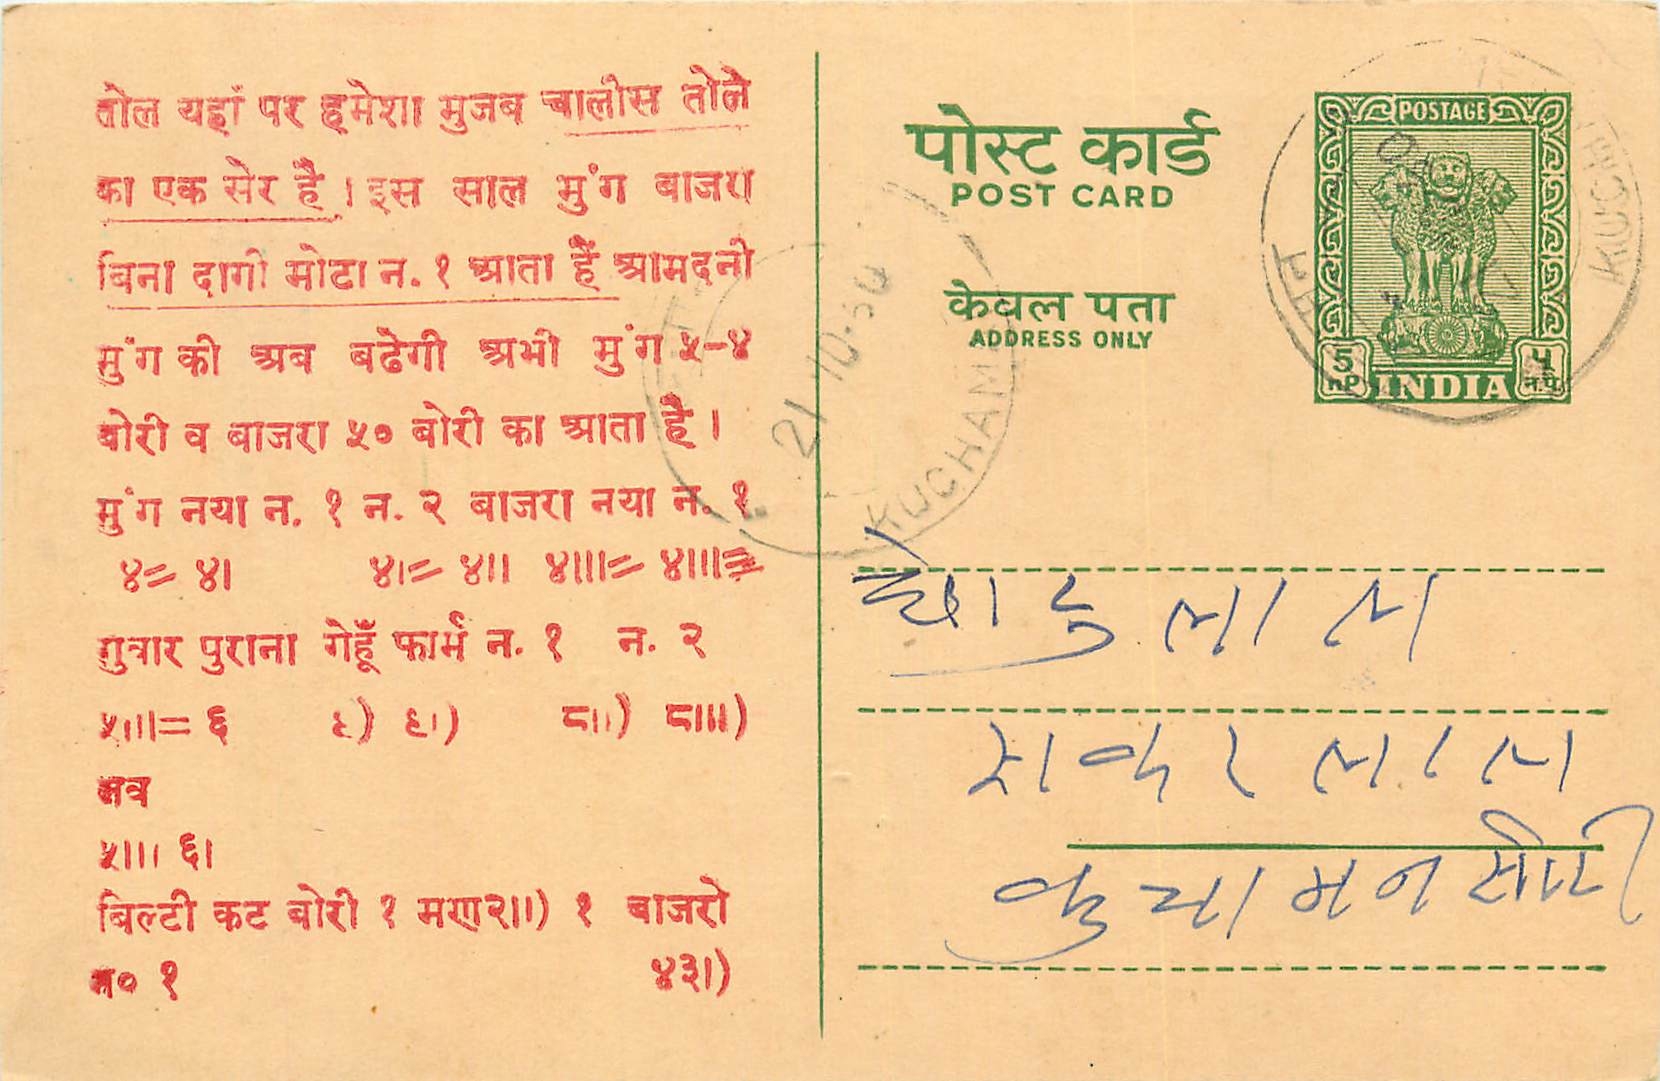 तोल यहां पर हमेशा मुजब चालीस तोले
का एक सेर है । इस साल मुंग बाजरा
बिना दागी मोटा न. १ आता है आमदनी
मुंग की अब बढेगी अभी मुंग ५-४
बोरी व बाजरा ५० बोरी का आता है ।
मुंग नया न. १ न. २ बाजरा नया न. १
४= ४। ४।= ४।। ४।।।= ४।।।≡
गुवार पुराना गेहूँ फार्म न. १ न. २
५।।।= ६ ९) ९।) ८।।) ८।।।)
५।।। ६।
बिल्टी कट बोरी १ मण२।।) १ बाजरो
न० १ ४३।)
पोस्ट कार्ड
POST CARD
केवल पता
ADDRESS ONLY
POSTAGE
5 nP. INDIA ५ न.पै.
21 10.
KUCHAM
KUCH
लाल
कुचामन सीटी